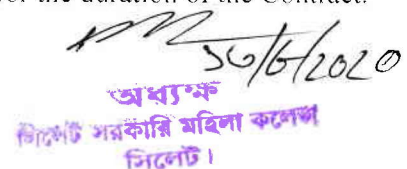 for the duration of the Contract.
১৬/6/2020
অধ্যক্ষ
সিলেট সরকারি মহিলা কলেজ
সিলেট।